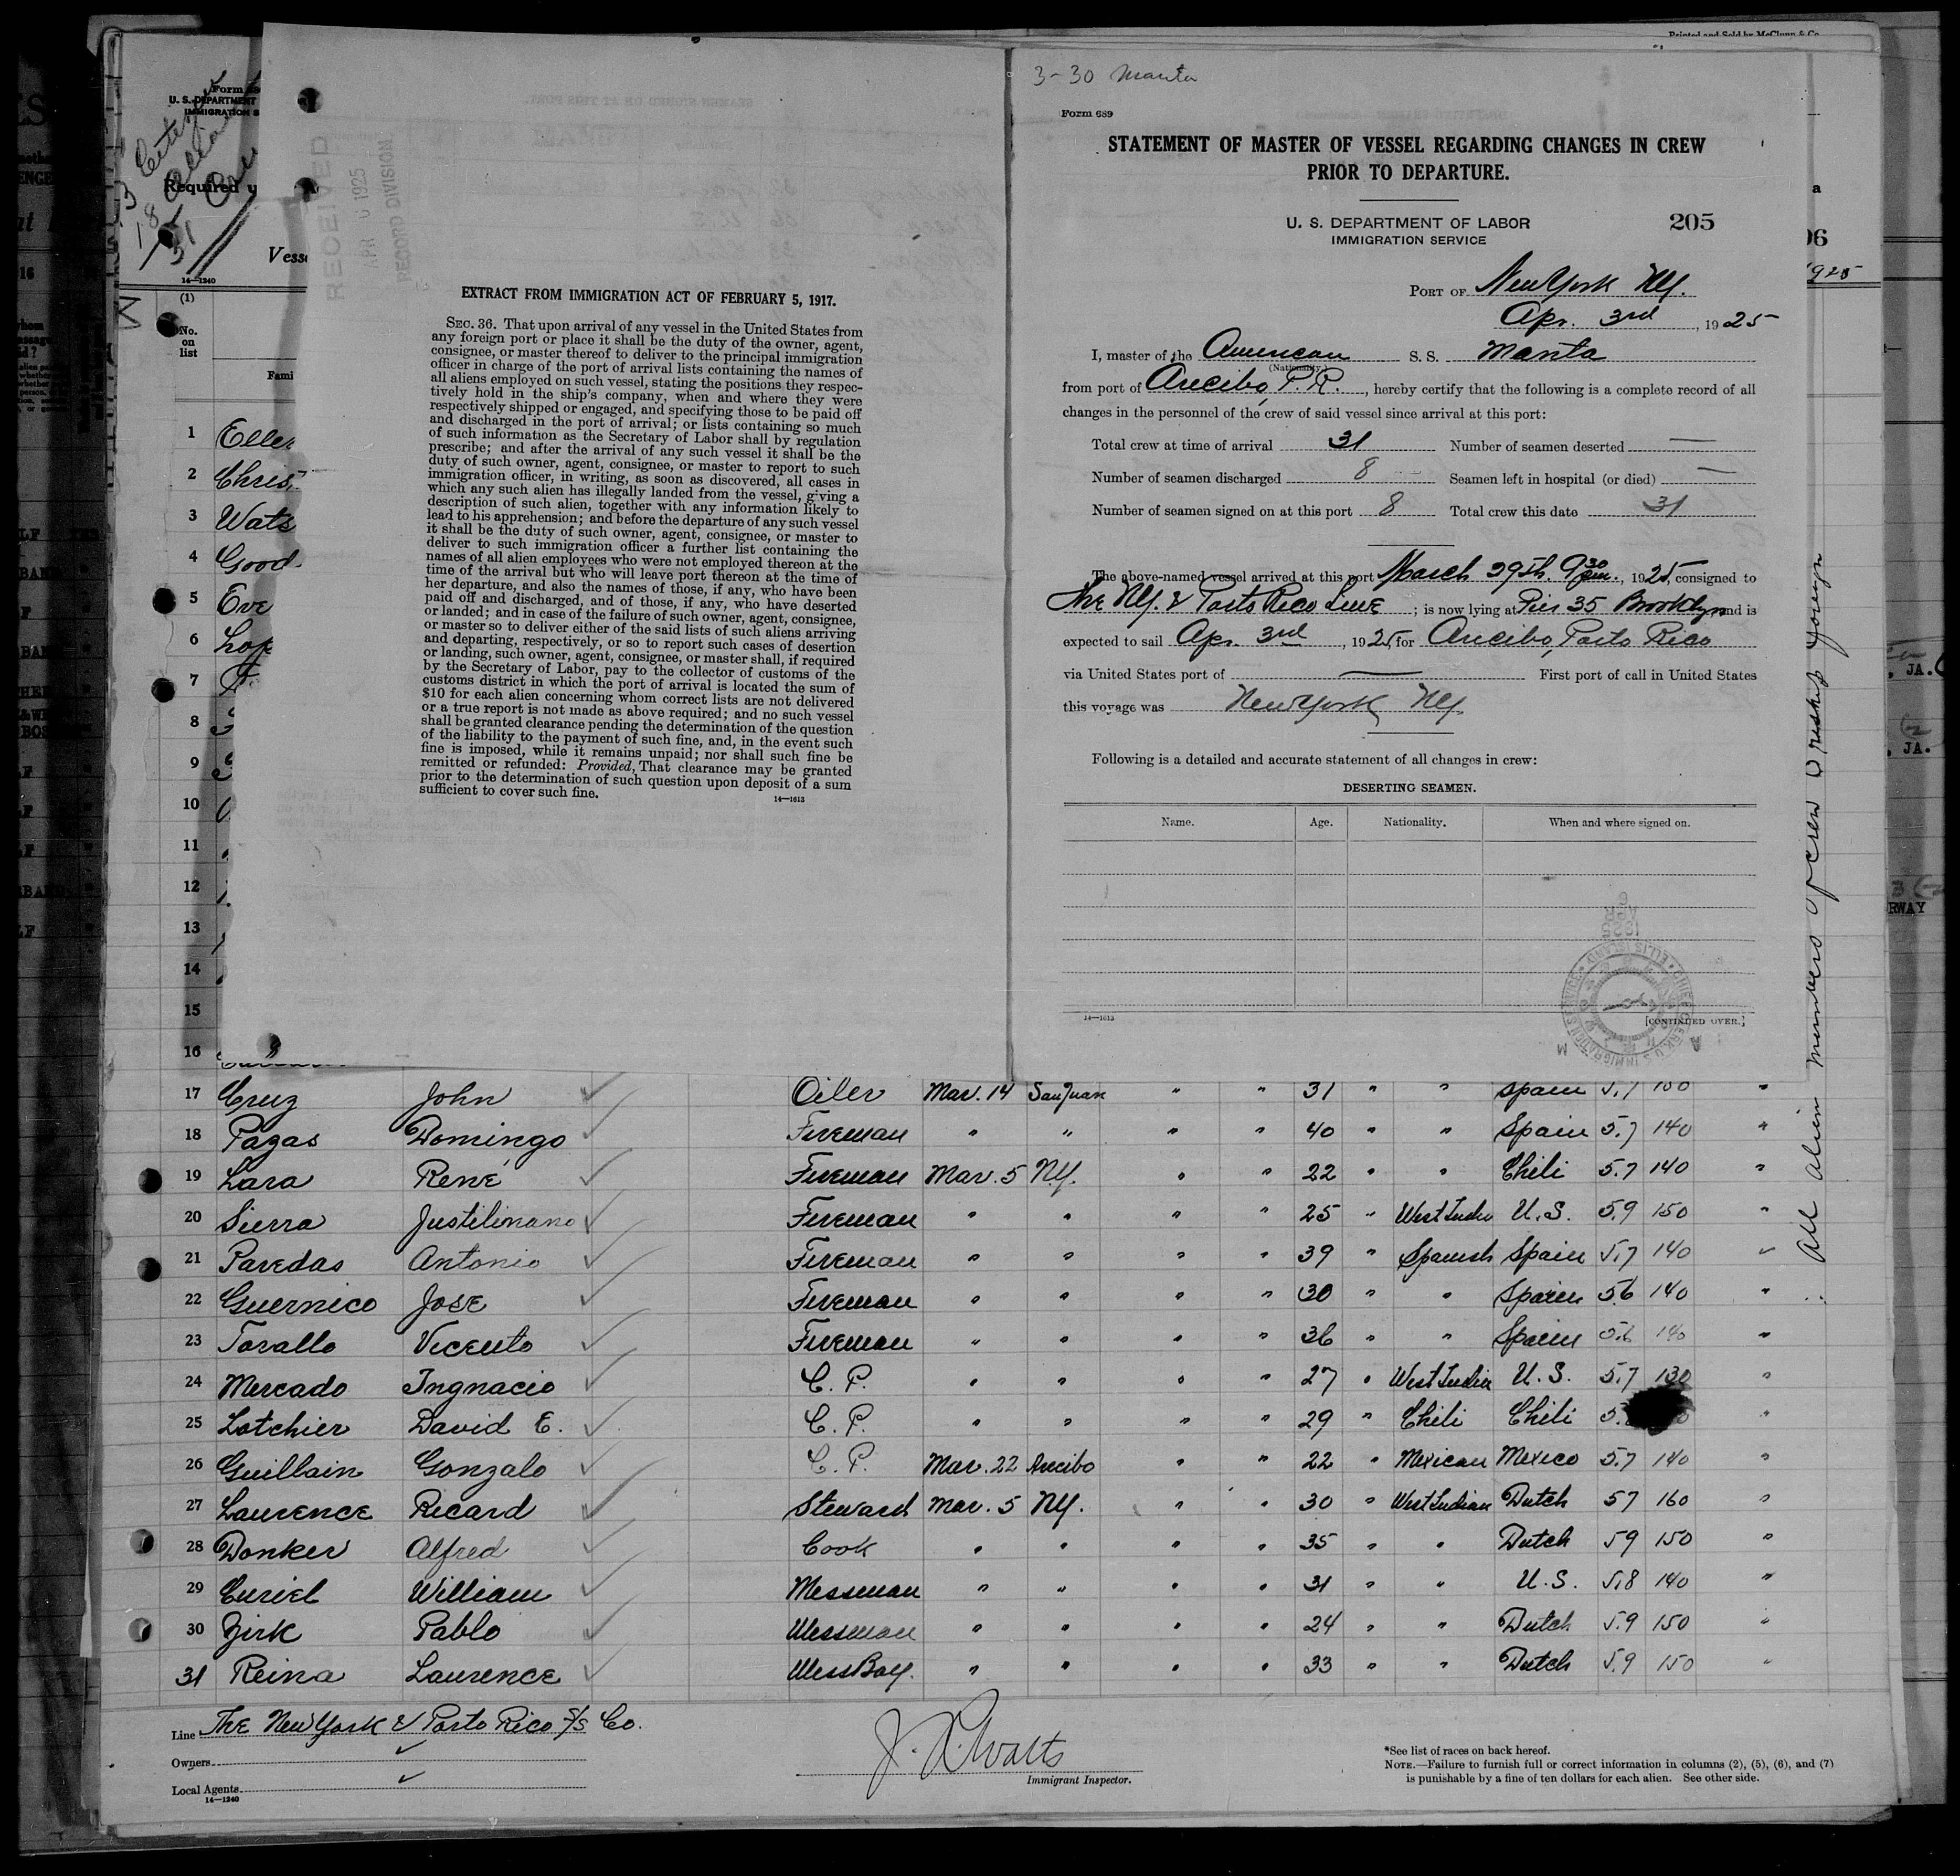 Printed and Sold by McClunn & Co
3-30 Manta
Form 689
STATEMENT OF MASTER OF VESSEL REGARDING CHANGES IN CREW
PRIOR TO DEPARTURE.
U. S. DEPARTMENT OF LABOR
IMMIGRATION SERVICE
205
PORT OF New York NY.
Apr. 3rd, 1925
I, master of the American S. S. Manta
(Nationality.)
from port of Arecibo, P. R., hereby certify that the following is a complete record of all
changes in the personnel of the crew of said vessel since arrival at this port:
Total crew at time of arrival 31 Number of seamen deserted —
Number of seamen discharged 8 Seamen left in hospital (or died) —
Number of seamen signed on at this port 8 Total crew this date 31
The above-named vessel arrived at this port March 29th. 9 30 pm., 1925, consigned to
The NY. & Porto Rico Line; is now lying at Pier 35 Brooklyn and is
expected to sail Apr. 3rd, 1925, for Arecibo, Porto Rico
via United States port of — First port of call in United States
this voyage was New York NY.
Following is a detailed and accurate statement of all changes in crew:
DESERTING SEAMEN.
Name. Age. Nationality. When and where signed on.
14—1613
[CONTINUED OVER.]
1925
All alien members of crew to reship foreign
RECEIVED
APR 6 1925
RECORD DIVISION
EXTRACT FROM IMMIGRATION ACT OF FEBRUARY 5, 1917.
SEC. 36. That upon arrival of any vessel in the United States from
any foreign port or place it shall be the duty of the owner, agent,
consignee, or master thereof to deliver to the principal immigration
officer in charge of the port of arrival lists containing the names of
all aliens employed on such vessel, stating the positions they respec-
tively hold in the ship's company, when and where they were
respectively shipped or engaged, and specifying those to be paid off
and discharged in the port of arrival; or lists containing so much
of such information as the Secretary of Labor shall by regulation
prescribe; and after the arrival of any such vessel it shall be the
duty of such owner, agent, consignee, or master to report to such
immigration officer, in writing, as soon as discovered, all cases in
which any such alien has illegally landed from the vessel, giving a
description of such alien, together with any information likely to
lead to his apprehension; and before the departure of any such vessel
it shall be the duty of such owner, agent, consignee, or master to
deliver to such immigration officer a further list containing the
names of all alien employees who were not employed thereon at the
time of the arrival but who will leave port thereon at the time of
her departure, and also the names of those, if any, who have been
paid off and discharged, and of those, if any, who have deserted
or landed; and in case of the failure of such owner, agent, consignee,
or master so to deliver either of the said lists of such aliens arriving
and departing, respectively, or so to report such cases of desertion
or landing, such owner, agent, consignee, or master shall, if required
by the Secretary of Labor, pay to the collector of customs of the
customs district in which the port of arrival is located the sum of
$10 for each alien concerning whom correct lists are not delivered
or a true report is not made as above required; and no such vessel
shall be granted clearance pending the determination of the question
of the liability to the payment of such fine, and, in the event such
fine is imposed, while it remains unpaid; nor shall such fine be
remitted or refunded: Provided, That clearance may be granted
prior to the determination of such question upon deposit of a sum
sufficient to cover such fine.
14—1613
Form 68
U. S. DEPARTMENT
IMMIGRATION S
Required
Vess
14—1240
(1)
No.
on
list
Fami
1 Eller
2 Chris
3 Wats
4 Good
5 Eve
6 Lop
7
8
9
10
11
12
13
14
15
16
17 Cruz John Oiler Mar. 14 San Juan " " 31 " " Spain 5.7 160 "
18 Pagas Domingo Fireman " " " " 40 " " Spain 5.7 140 "
19 Lara René Fireman Mar. 5 N.Y. " " 22 " " Chili 5.7 140 "
20 Sierra Justilinano Fireman " " " " 25 " West Indi U. S. 5.9 150 "
21 Paredas Antonio Fireman " " " " 39 " Spanish Spain 5.7 140 "
22 Guernico Jose Fireman " " " " 30 " " Spain 5.6 140 "
23 Torallo Vicento Fireman " " " " 36 " " Spain 5.6 140 "
24 Mercado Ingnacio C. P. " " " " 27 " West Indian U. S. 5.7 130 "
25 Lotchier David E. C. P. " " " " 29 " Chili Chili 5. "
26 Guillain Gonzalo C. P. Mar. 22 Arecibo " " 22 " Mexican Mexico 5.7 140 "
27 Laurence Ricard Steward Mar. 5 NY. " " 30 " West Indian Dutch 57 160 "
28 Donker Alfred Cook " " " " 35 " " Dutch 59 150 "
29 Curiel William Messman " " " " 31 " " U. S. 5.8 140 "
30 Zirk Pablo Messman " " " " 24 " " Dutch 5.9 150 "
31 Reina Laurence Mess Boy. " " " " 33 " " Dutch 5.9 150 "
Line The New York & Porto Rico S/S Co.
Owners
Local Agents
14—1240
J. R. Watts
Immigrant Inspector.
*See list of races on back hereof.
NOTE.—Failure to furnish full or correct information in columns (2), (5), (6), and (7)
is punishable by a fine of ten dollars for each alien. See other side.